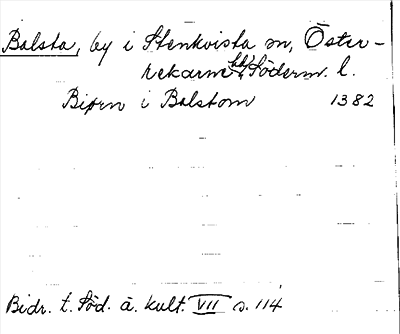 Balsta, by i Stenkvista sn, Öster-
rekarne hd, Söderm. l.
Biorn i Balstom 1382
Bidr. t. Söd. ä. kult. VII s. 114